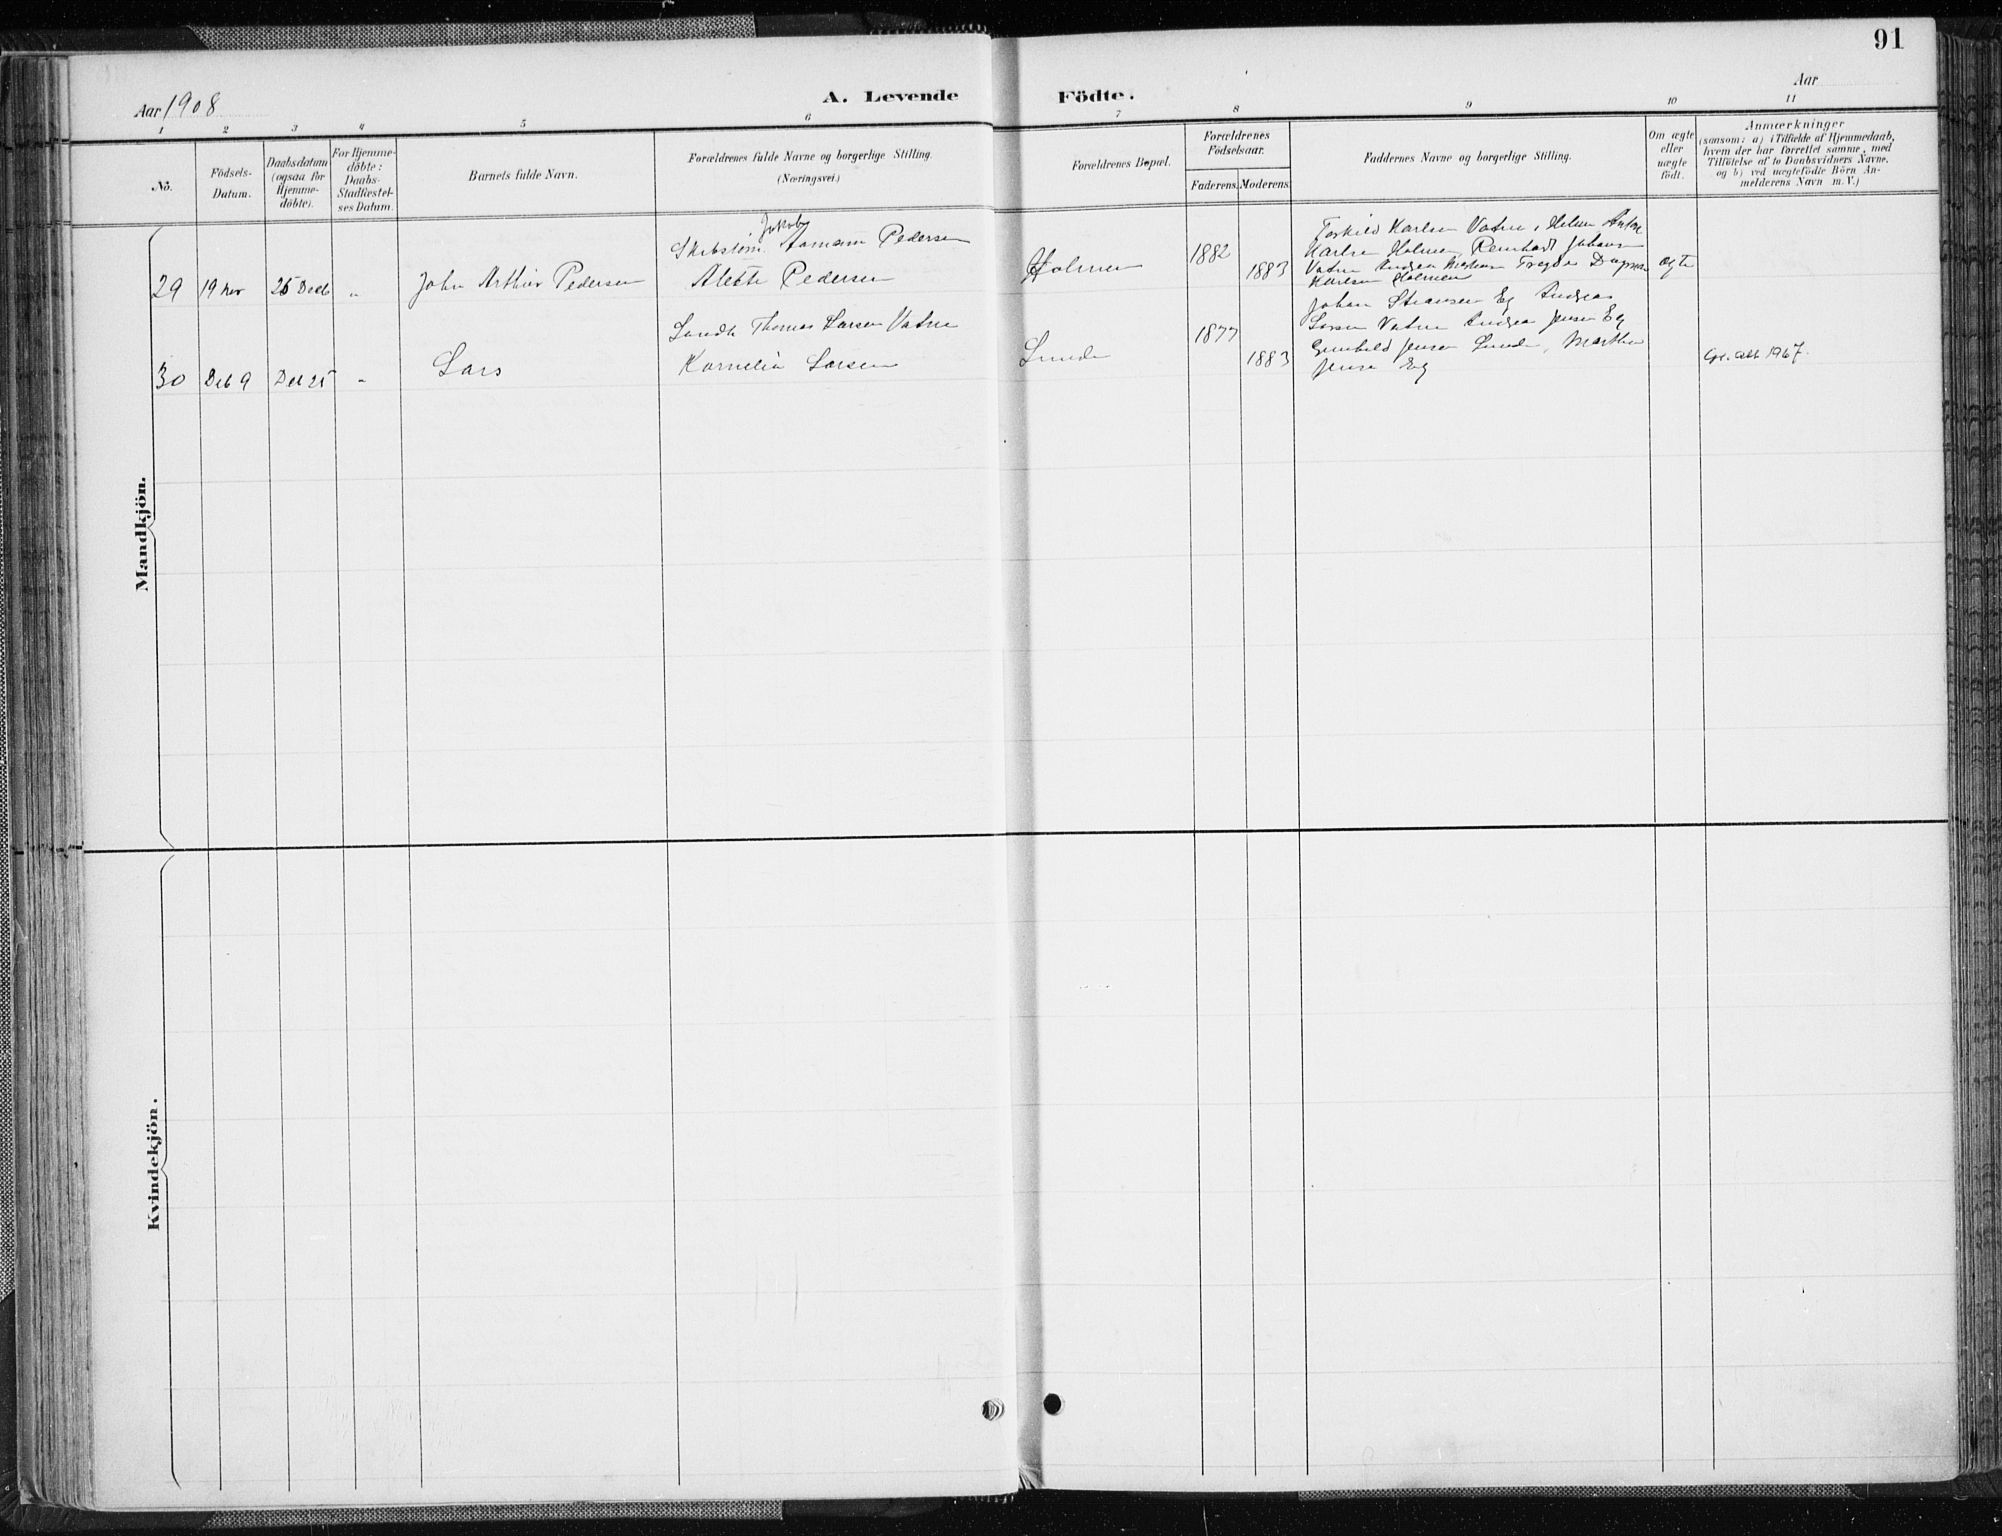 91
Aar 1908 A. Levende Födte. Aar
1 2 3 4 5 6 7 8 9 10 11
No.
Födsels-
Datum.
Daabsdatum
(ogsaa for
Hjemme-
döbte).
For Hjemme-
döbte:
Daabs-
Stadfæstel-
ses Datum.
Barnets fulde Navn.
Forældrenes fulde Navne og borgerlige Stilling.
(Næringsvei.)
Forældrenes Bopæl.
Forældrenes
Födselsaar.
Faderens. Moderens.
Faddernes Navne og borgerlige Stilling.
Om ægte
eller
uægte
födt.
Anmærkninger
(saasom: a) i Tilfælde af Hjemmedaab,
hvem der har forrettet samme, med
Tilföielse af to Daabsvidners Navne.
og b) ved uægtefödte Börn An-
melderens Navn m. V.)
Mandkjön.
29 19 Nov 26 Decb " John Arthur Pedersen
Jakob
Aamann Pedersen
Pedersen
Holmen
1882
1883
Torkild Karlsen Vatne, Anton
Karlsen Holmen Reinhart Johans
Vatne Andrea
Karlsen Holmen
ægte
30 Decb 9 Dec 25 " Lars
Thomas Larsen Vatne
Kornelia Larsen
Lunde
1877
1883
Johan Eg Andreas
Larsen Vatne Andrea Jensen Eg
Gunhild Jensen Lunde, Marthe
Jensen Eg
1967.
Kvindekjön.